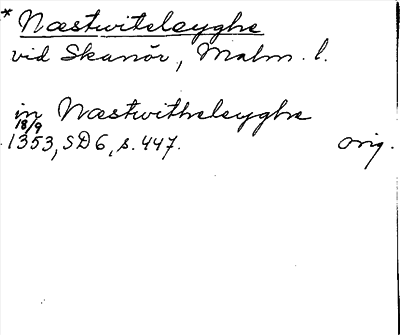 * Næstwitslæyghe
vid Skanör, Malm. l.
in Næstwithslæyghe
18/9
1353, SD 6, s. 447. orig.